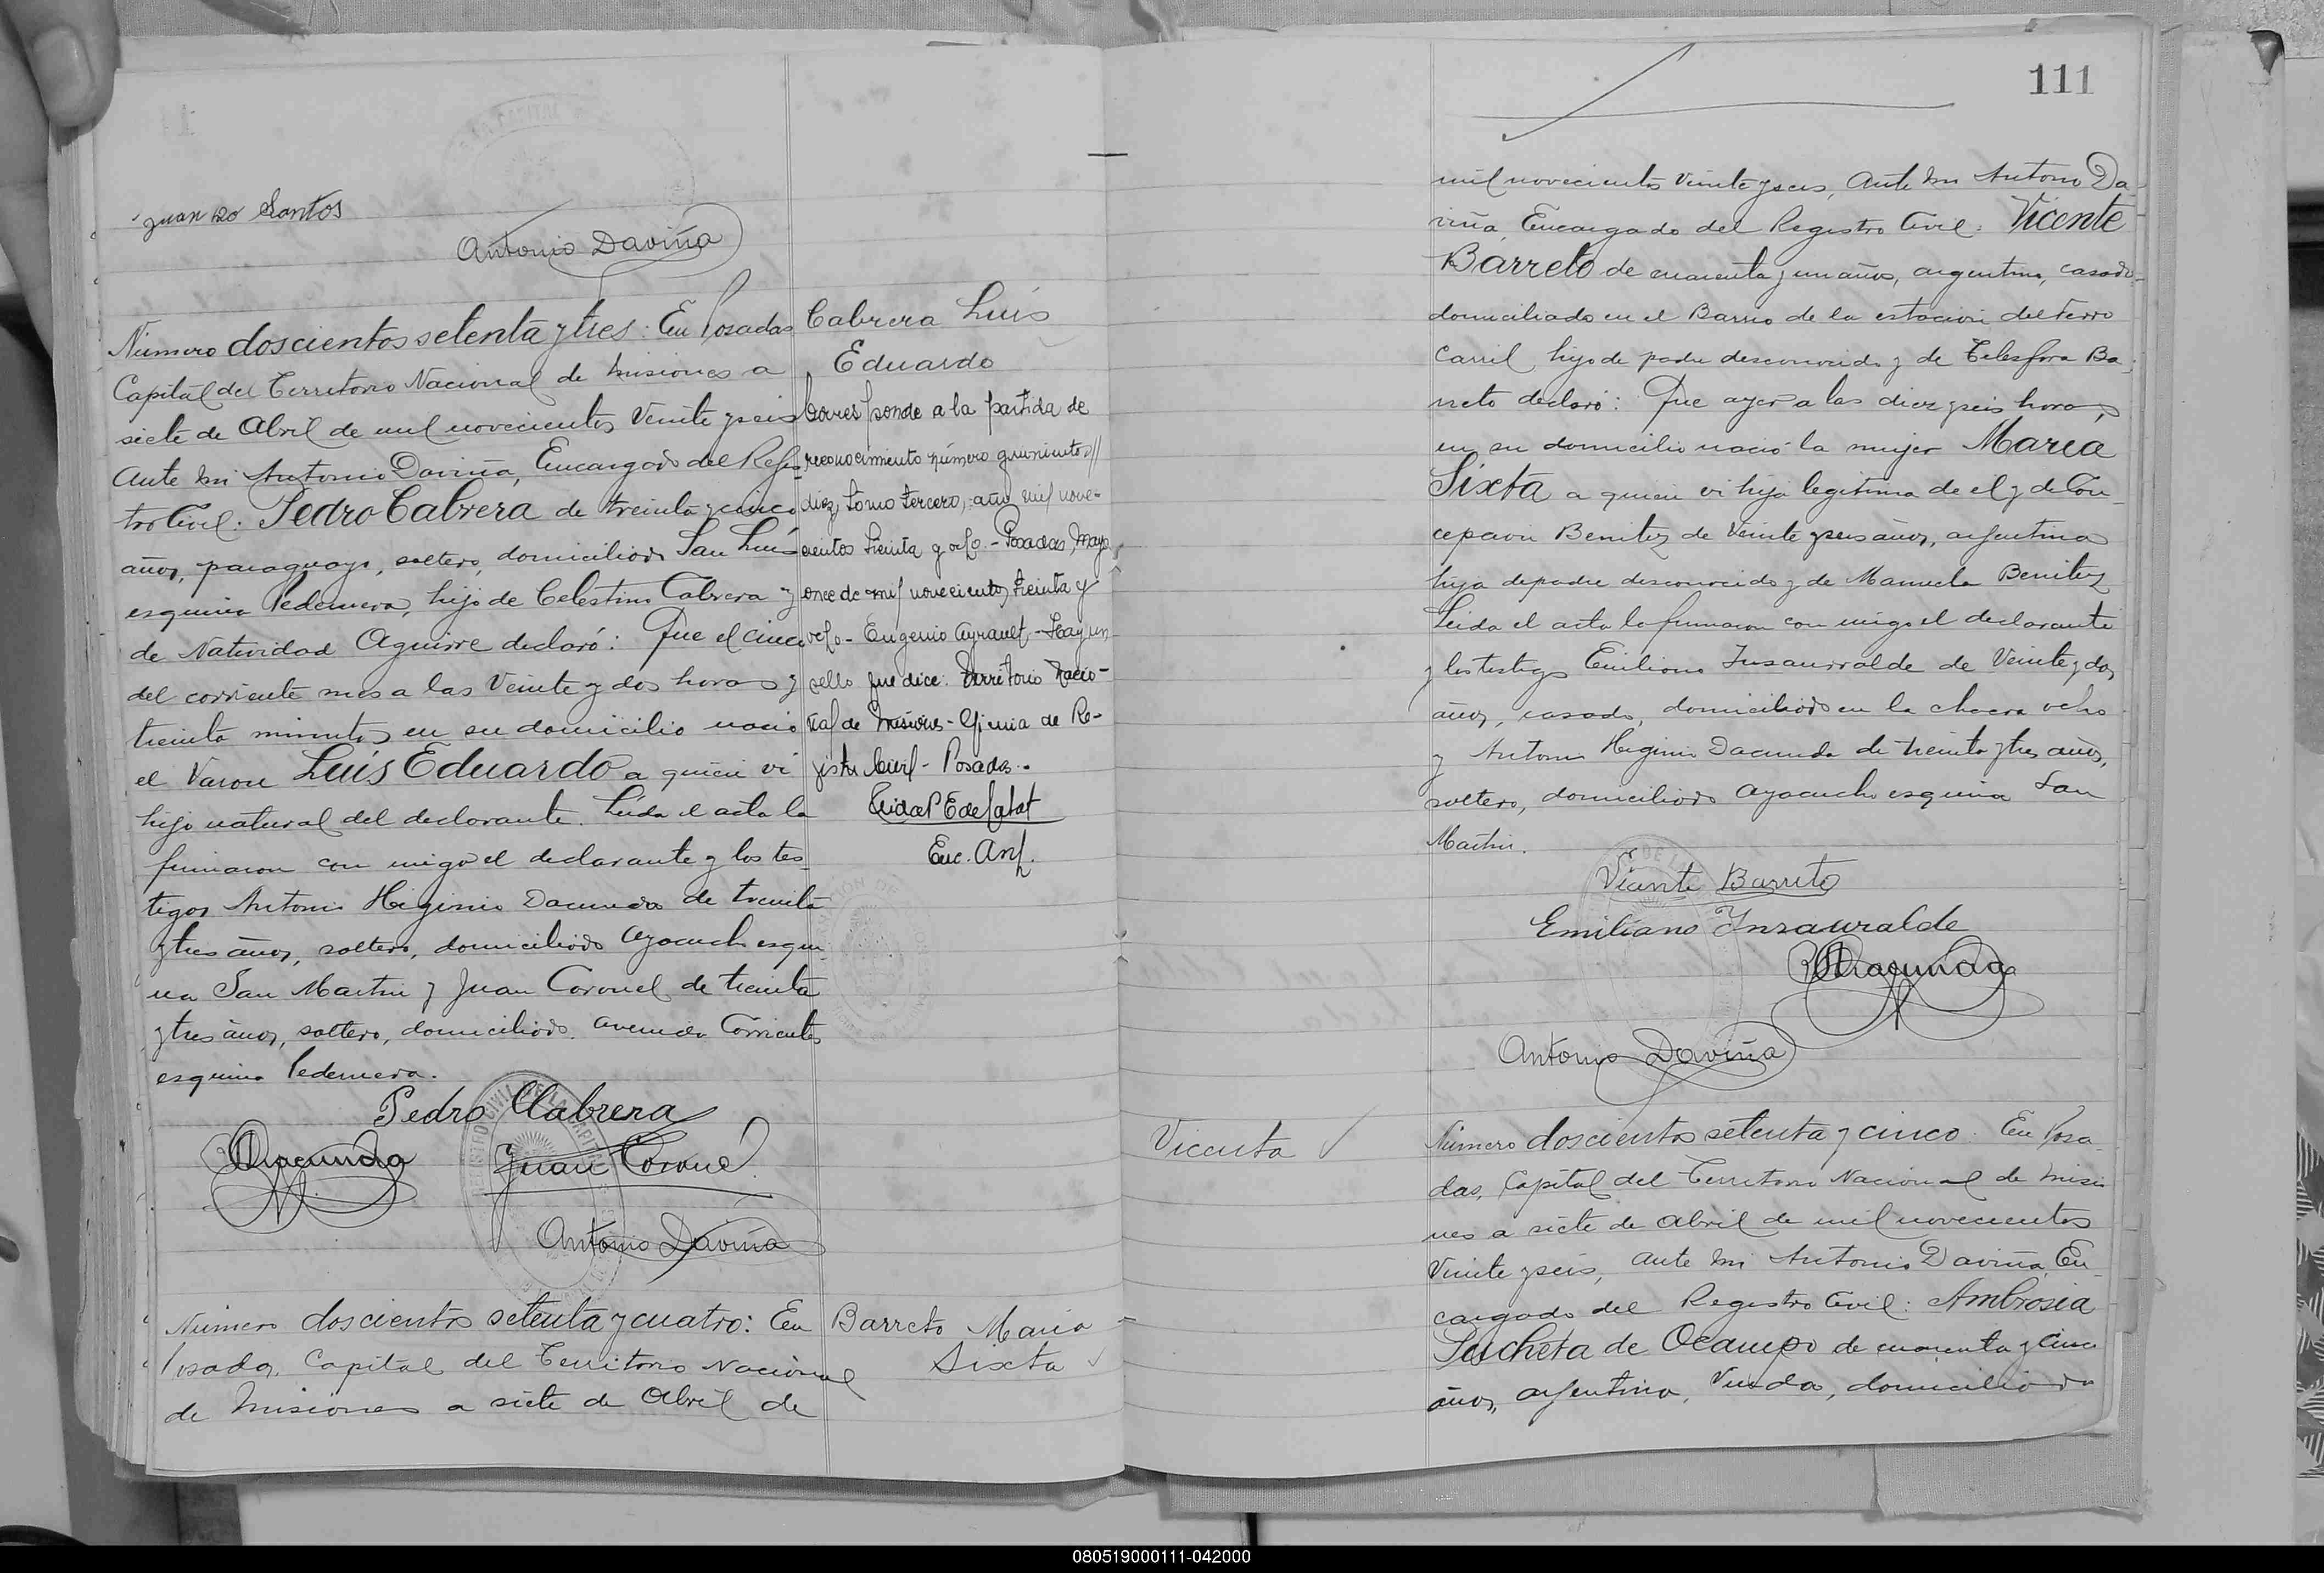 Juan do Santos
Antonio Daviña
Número doscientos setenta y tres: En Posadas
Capital del Territorio Nacional de Misiones a
siete de Abril de mil novecientos Veinte y seis
Ante mi Antonio Daviña, Encargado del Regis
tro Civil: Pedro Cabrera de treinta y cinco
años, paraguayo, soltero, domiciliado San Luis
esquina Pedernera, hijo de Celestino Cabrera y
de Natividad Aguirre declaró: Que el cinco
del corriente mes a las Veinte y dos horas y
treinta minutos en su domicilio nació
el Varon Luis Eduardo a quien vi
hijo natural del declarante. Leída el acta la
firmaron con migo el declarante y los tes
tigos Antonio Higinio Dacunda de treinta
y tres años, soltero, domiciliado Ayacucho esqui
na San Martin y Juan Coronel de treinta
y tres años, soltero, domiciliado avenida Corrientes
esquina Pedernera.
Pedro Cabrera
Dacunda
Juan Coronel
Antonio Daviña
Cabrera Luis
Eduardo
Corresponde a la partida de
reconocimiento número quinientos
diez, tomo tercero, año mil nove-
cientos treinta y ocho - Posadas, Mayo
once de mil novecientos treinta y
ocho - Eugenio Ayrault - Hay un
sello que dice: Territorio Nacio-
nal de Misiones - Oficina de Re-
gistro Civil - Posadas.
Enc.
Número doscientos setenta y cuatro: En
Posadas, Capital del Territorio Nacional
de Misiones a siete de Abril de
Barreto Maria
Sixta
111
mil novecientos Veinte y seis, Ante mi Antonio Da
viña, Encargado del Registro Civil: Vicente
Barreto de cuarenta y un años, argentino, casado
domiciliado en el Barrio de la estación del Ferro
Carril hijo de padre desconocido y de Telesfora Ba
rreto declaró: Que ayer a las diez y seis horas
en su domicilio nació la mujer Maria
Sixta a quien vi hija legitima de el y de Con
cepcion Benitez de Veinte y seis años, argentina
hija de padre desconocido y de Manuela Benitez
Leida el acta la firmaron con migo el declarante
y los testigos Emiliano Insaurralde de Veinte y dos
años, casado, domiciliado en la chacra ocho
y Antonio Higinio Dacunda de treinta y tres años,
soltero, domiciliado Ayacucho esquina San
Martin.
Vicente Barreto
Emiliano Insauralde
Dacunda
Antonio Daviña
Vicenta
Número doscientos setenta y cinco: En Posa
das, Capital del Territorio Nacional de Misio
nes a siete de Abril de mil novecientos
Veinte y seis, Ante mi Antonio Daviña, En
cargado del Registro Civil: Ambrosia
Sucheta de Ocampo de cuarenta y cinco
años, argentina, Viuda, domiciliada
080519000111-042000